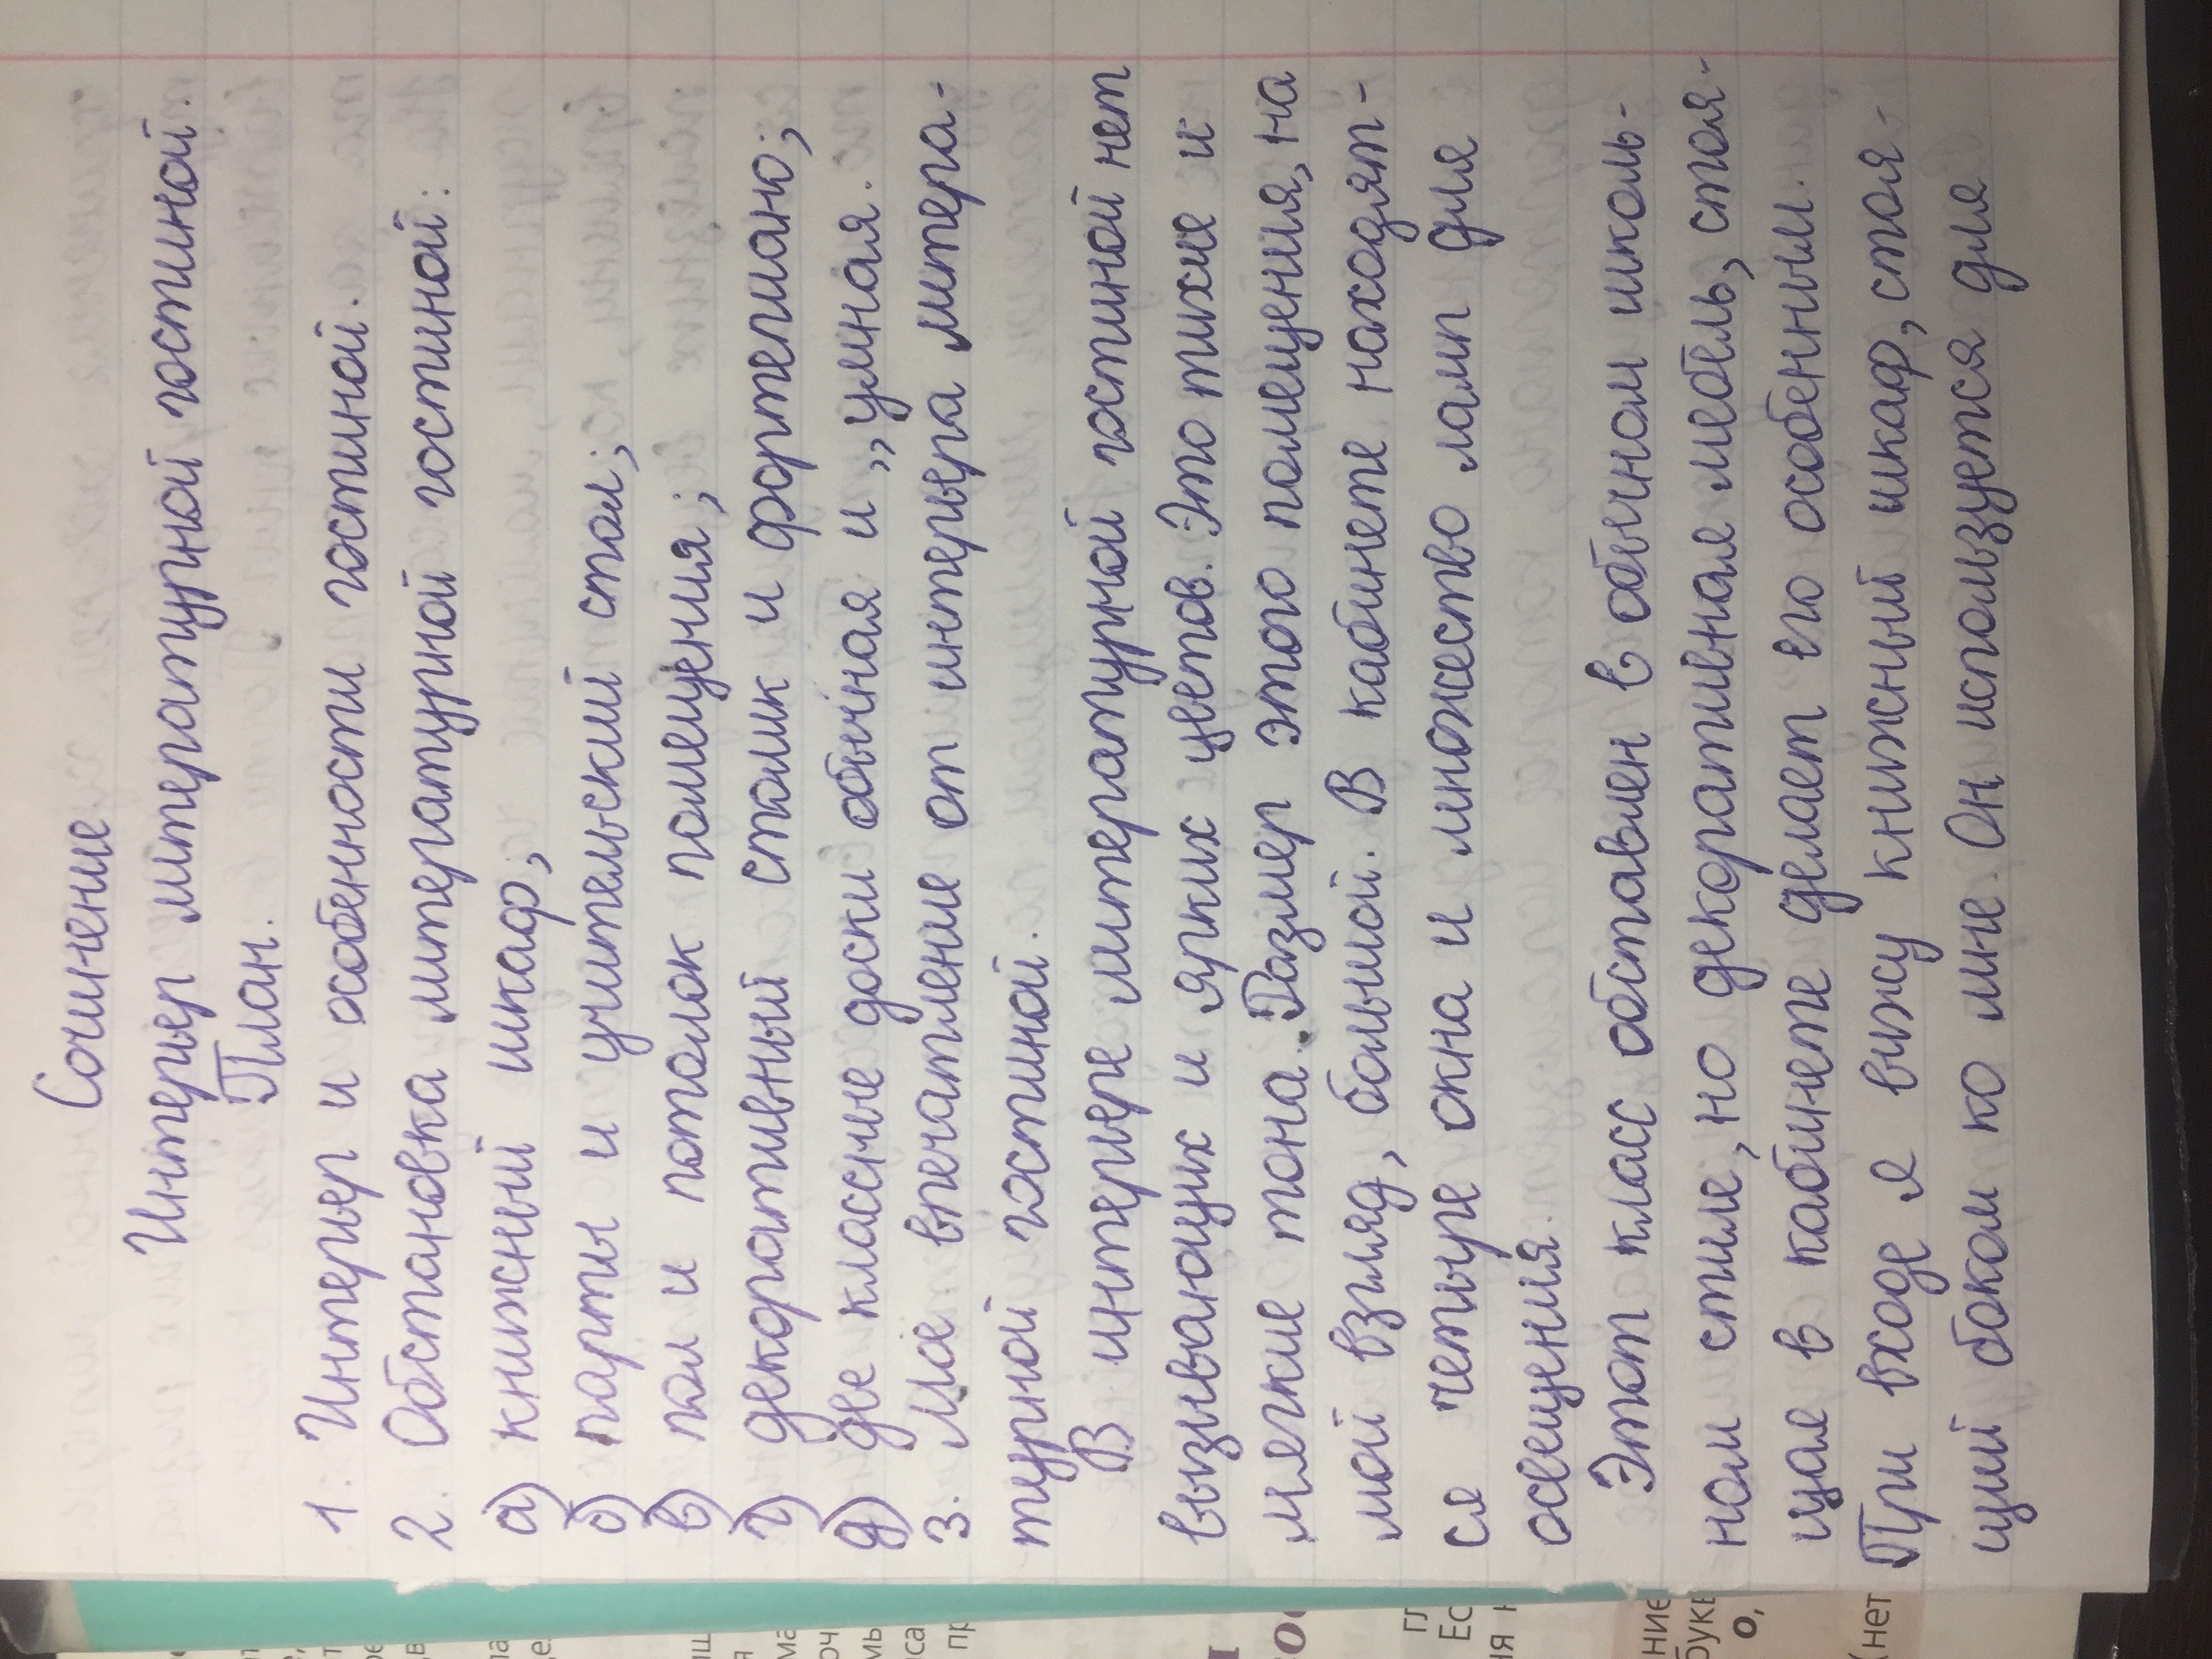 Сочинение
Интерьер литературной гостиной.
План.
1. Интерьер и особенности гостиной.
2. Обстановка литературной гостиной:
а) книжный шкаф;
б) парты и учительский стол;
в) пол и потолок помещения;
г) декоративный столик и фортепиано;
д) две классные доски обычная и „умная.
3. Моё впечатление от интерьера литера-
турной гостиной.
В интерьере литературной гостиной нет
вызывающих и ярких цветов. Это тихие и
мягкие тона. Размер этого помещения, на
мой взгляд, большой. В кабинете находят-
ся четыре окна и множество ламп для
освещения.
Этот класс обставлен в обычном школь-
ном стиле, но декоративная мебель, стоя-
щая в кабинете делает его особенным.
При входе я вижу книжный шкаф, стоя-
щий боком ко мне. Он используется для